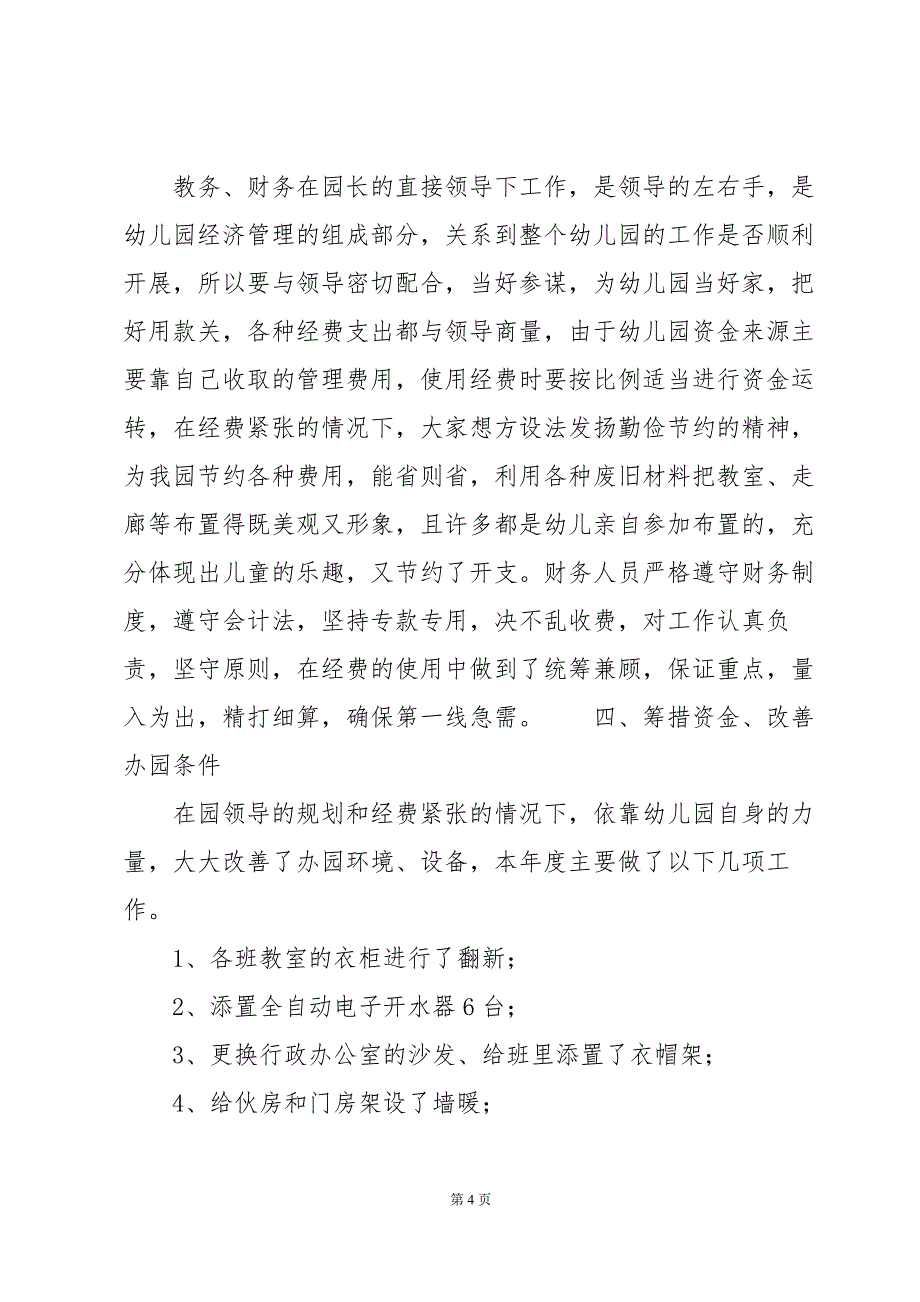 教务、财务在园长的直接领导下工作，是领导的左右手，是
幼儿园经济管理的组成部分，关系到整个幼儿园的工作是否顺利
开展，所以要与领导密切配合，当好参谋，为幼儿园当好家，把
好用款关，各种经费支出都与领导商量，由于幼儿园资金来源主
要靠自己收取的管理费用，使用经费时要按比例适当进行资金运
转，在经费紧张的情况下，大家想方设法发扬勤俭节约的精神，
为我园节约各种费用，能省则省，利用各种废旧材料把教室、走
廊等布置得既美观又形象，且许多都是幼儿亲自参加布置的，充
分体现出儿童的乐趣，又节约了开支。财务人员严格遵守财务制
度，遵守会计法，坚持专款专用，决不乱收费，对工作认真负
责，坚守原则，在经费的使用中做到了统筹兼顾，保证重点，量
入为出，精打细算，确保第一线急需。　　四、筹措资金、改善
办园条件
在园领导的规划和经费紧张的情况下，依靠幼儿园自身的力
量，大大改善了办园环境、设备，本年度主要做了以下几项工
作。
1、各班教室的衣柜进行了翻新；
2、添置全自动电子开水器 6 台；
3、更换行政办公室的沙发、给班里添置了衣帽架；
4、给伙房和门房架设了墙暖；
第 4 页